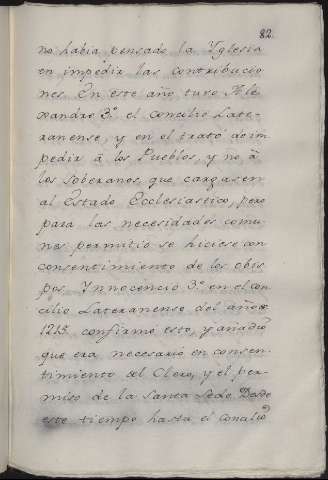 82.
no habia pensado la Yglesia
en impedir las contribucio
nes. En este año tuvo Ale
xandro 3.º el Concilio Late-
ranense, y en el trató de im
pedir à los Pueblos, y no à
los Soberanos que cargasen
al Estado Ecclesiastico, pero
para las necesidades comu
nes permitio se hiciese con
consentimiento de los obis
pos. Ynnocencio 3.º en el con
cilio Lateranense del año de
1215. confirmó esto, y añadio
que era necesario en consen-
timiento del Clero, y el per-
miso de la Santa Sede. Desde
este tiempo hasta el concilio